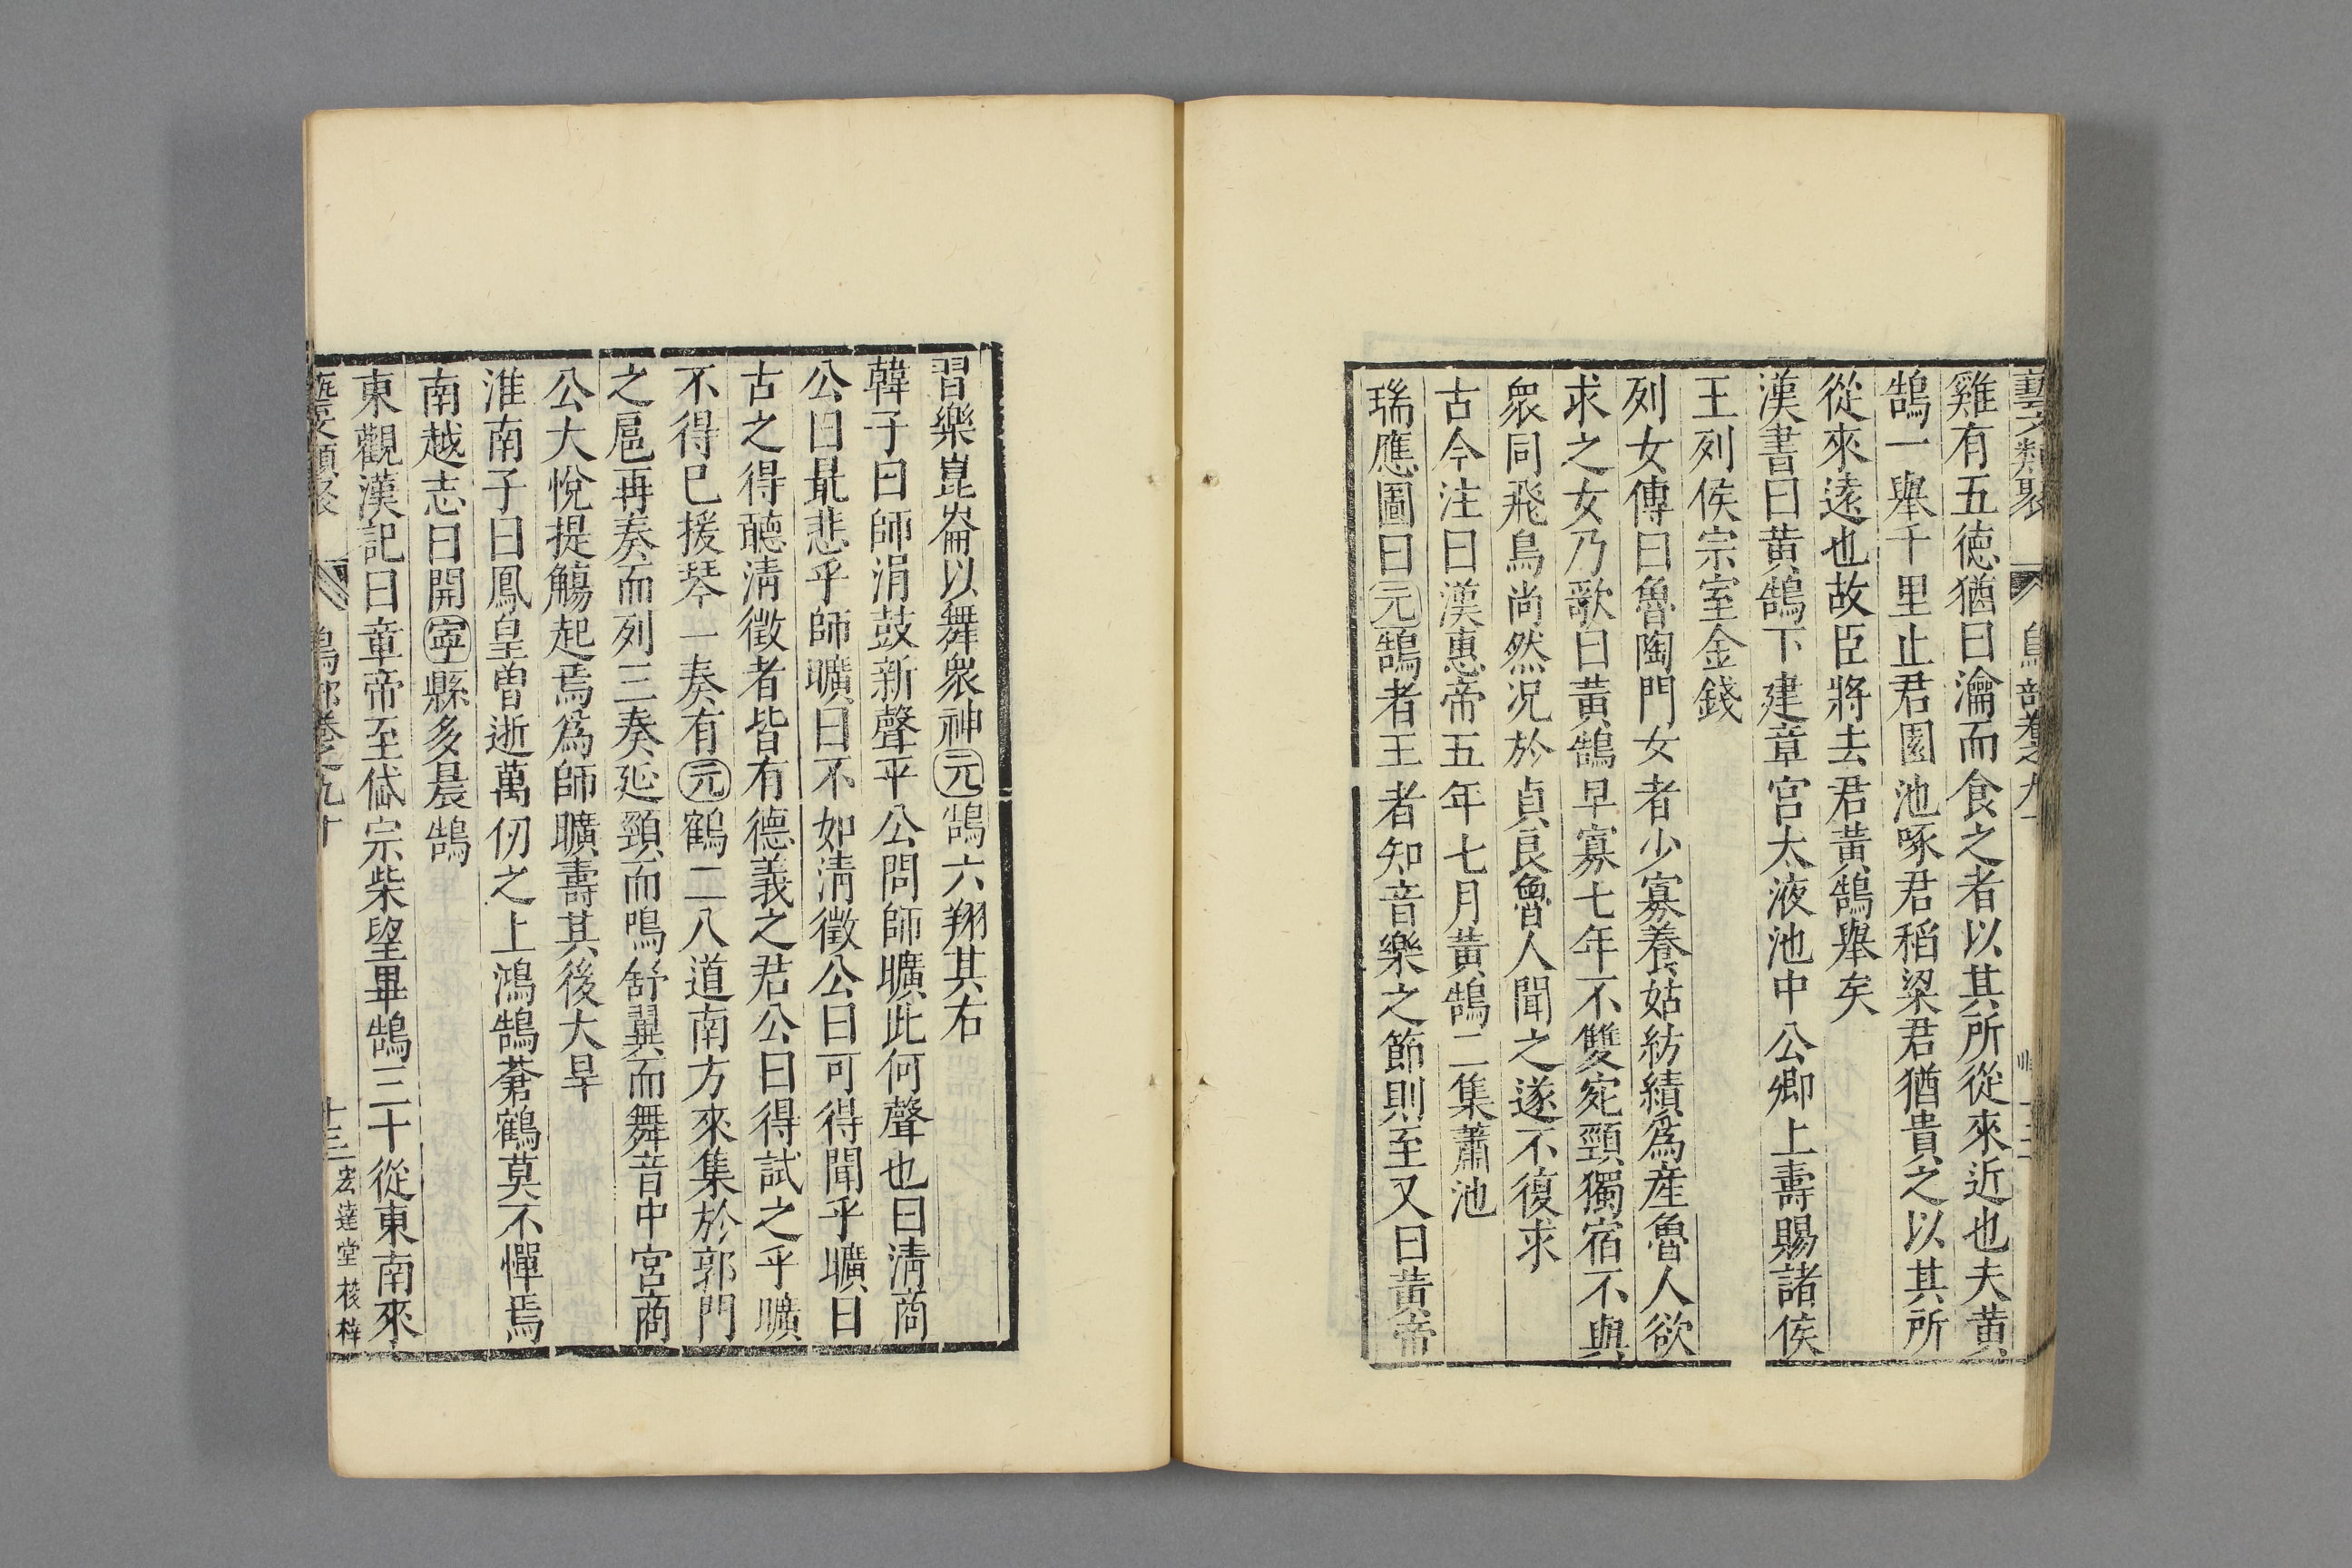 藝文類聚 鳥部卷之九十
雞有五德猶曰瀹而食之者以其所從來近也夫黃
鵠一舉千里止君園池啄君稻粱君猶貴之以其所
從來遠也故臣將去君黃鵠舉矣
漢書曰黃鵠下建章宮太液池中公卿上壽賜諸侯
王列侯宗室金錢
列女傳曰魯陶門女者少寡養姑紡績爲產魯人欲
求之女乃歌曰黃鵠早寡七年不雙宛頸獨宿不與
衆同飛鳥尚然况於貞良魯人聞之遂不復求
古今注曰漢惠帝五年七月黃鵠二集蕭池
瑞應圖曰元鵠者王者知音樂之節則至又曰黃帝
習樂崑崙以舞衆神元鵠六翔其右
韓子曰師涓鼓新聲平公問師曠此何聲也曰清商
公曰最悲乎師曠曰不如清徵公曰可得聞乎曠曰
古之得聽清徵者皆有德義之君公曰得試之乎曠
不得已援琴一奏有元鶴二八道南方來集於郭門
之扈再奏而列三奏延頸而鳴舒翼而舞音中宮商
公大悅提觴起焉爲師曠壽其後大旱
淮南子曰鳳皇曾逝萬仞之上鴻鵠蒼鶴莫不憚焉
南越志曰開寧縣多晨鵠
東觀漢記曰章帝至岱宗柴望畢鵠三十從東南來
藝文類聚 鳥部卷之九十 十三 宏達堂校梓